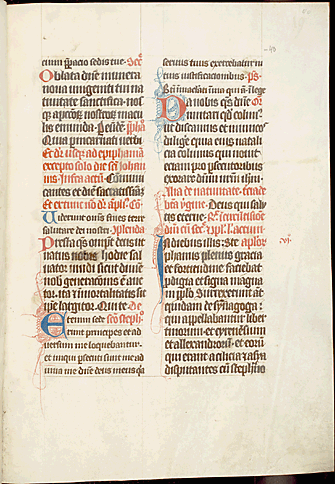 eius preparacio sedis tue. Secreta
Oblata domine munera
noua unigeniti tui na
tiuitate sanctifica. nos
que a peccatorum nostrorum macu
lis emunda. Per eundem. prephatio
Quia per incarnati uerbi
Et dicitur usque ad epiphaniam
excepto solo die sancti iohannis
infra actionem Communi
cantes et diem sacratissimum
Uiderunt omnes fines terre
salutare dei nostri. Complenda
Presta quesumus omnipotens deus ut
natus nobis hodie sal
uator mundi sicut diuine
nobis generationis est auc
tor. ita et immortalitatis sit
ipse largitor. Qui te
Etenim sede sancti stephani
runt principes et ad
uersum me loquebantur.
et iniqui persecuti sunt me ad
iuua me domine deus meus quia
seruus tuus exercebatur in
tuis iustificationibus. ps
Beati immaculati in uia qui ambulant in lege
Da nobis quesumus domine Or
imitari quod colimus.
ut discamus et inimicos
diligere quia eius natali
cia colimus qui nouit
eciam pro persecutoribus
exorare dominum nostrum ihesum
Deus qui salu
tis eterne.
In diebus illis. Ste apostolorum vi
phanus plenus gracia
et fortitudine faciebat
prodigia et signa magna
in populo. Surrexerunt autem
quidam de synagoga
que appellabatur liber
tinorum et cyrenensium
et allexandrorum. et eorum
qui erant a cilicia et asya
disputantes cum stephano